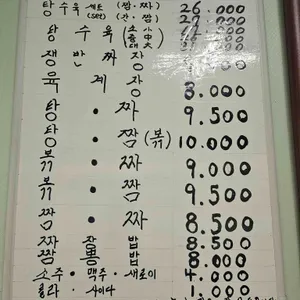 탕수육 세트 (짬·짜) 26.000
(SET) (간·짬) 27.000
탕수육 (소小 중中 대大)
쟁반짜장
육계장 8.000
탕·짜 9.500
탕·짬(볶) 10.000
볶·짜 9.000
볶·짬 9.500
짬·짜 8.500
짜장밥 8.500
짬뽕밥 8.000
소주·맥주·새로이 4.000
콜라·사이다 1.000